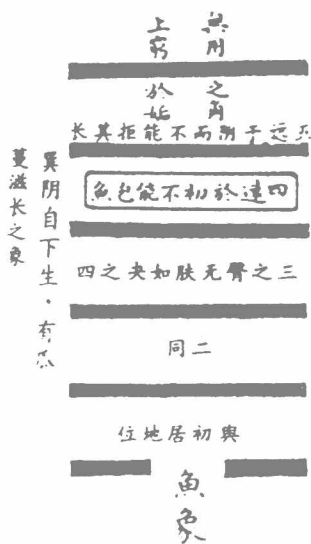 無用之角
上窮於姤
五远于阴而不能拒其长
四遠於初不能包魚
三之臀无肤如夬之四
二同
與初居地位
魚象
巽阴自下生，有瓜
蔓滋长之象